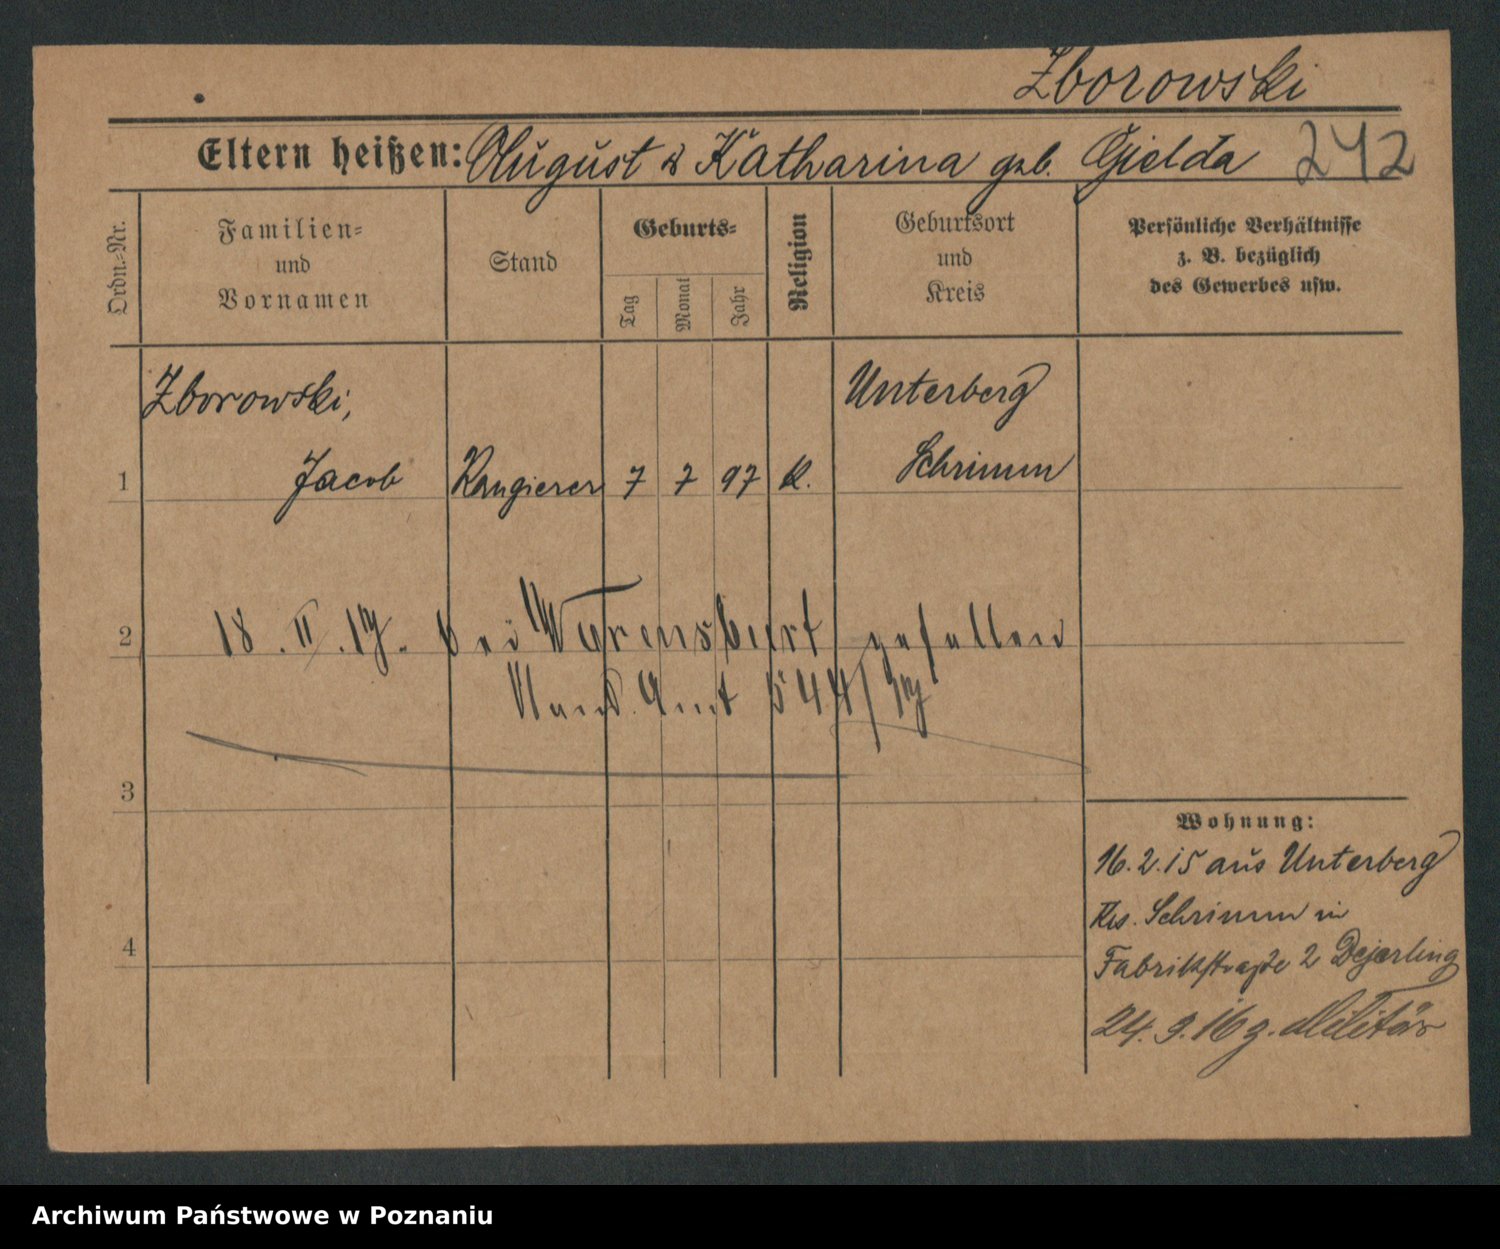 Zborowski
Eltern heißen: August & Katharina geb. Gielda 242
Ordn.-Nr.
Familien- und Vornamen
Stand
Geburts-
Tag
Monat
Jahr
Religion
Geburtsort und Kreis
Persönliche Verhältnisse
z. B. bezüglich
des Gewerbes usw.
Zborowski,
Unterberg
1 Jacob Rangierer 7 7 97 k. Schrimm
2 18. II. 17. bei gefallen
Amt 544/17
3
Wohnung:
16.2.15 aus Unterberg
Krs. Schrimm in
4 Fabrikstraße 2 Dejerling
24.9.16 z. Militär
Archiwum Państwowe w Poznaniu